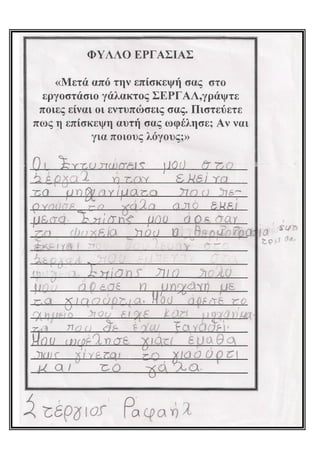 ΦΥΛΛΟ ΕΡΓΑΣΙΑΣ
«Μετά από την επίσκεψή σας στο
εργοστάσιο γάλακτος ΣΕΡΓΑΛ,γράψτε
ποιες είναι οι εντυπώσεις σας. Πιστεύετε
πως η επίσκεψη αυτή σας ωφέλησε; Αν ναι
για ποιους λόγους;»
Οι Εντυπώσεις μου στο
Σέργαλ ήταν εκείνα
τα μηχανίματα που πε-
ρνούσε το γάλα από εκεί
μέσα Επίσης μου άρεσαν
τα ψυχεία που η θερμοκρασία
εκεί
Σεργαλ που έμπεναν στα
ψυγεία Επίσης πιο πολύ
μου άρεσε η μηχανή με
τα γιαούρτια. Μου άρεσε το
χημείο που είχε κάτι μηχανίμα-
τα που δε έχω ξαναδεί.
Μου ωφέλησε γιατί έμαθα
πως γίνεται το γιαούρτι
και το γάλα.
Στέργιος Ραφαήλ